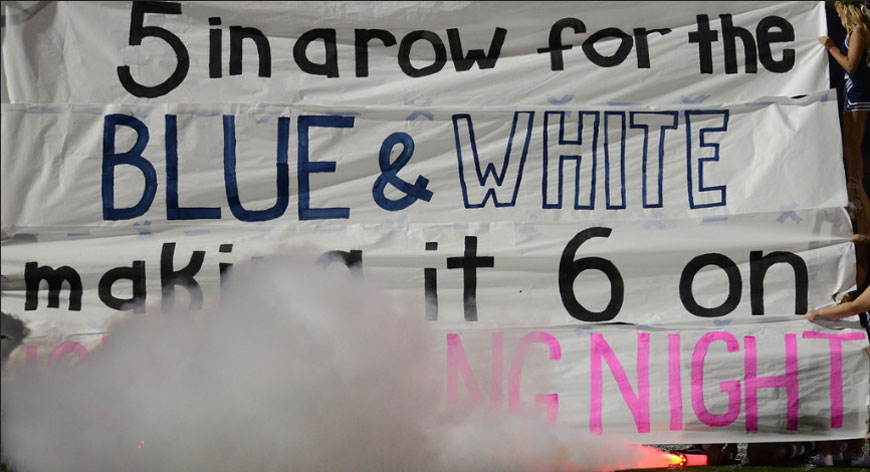 5 in a row for the
BLUE & WHITE
making it 6 on
NG NIGHT